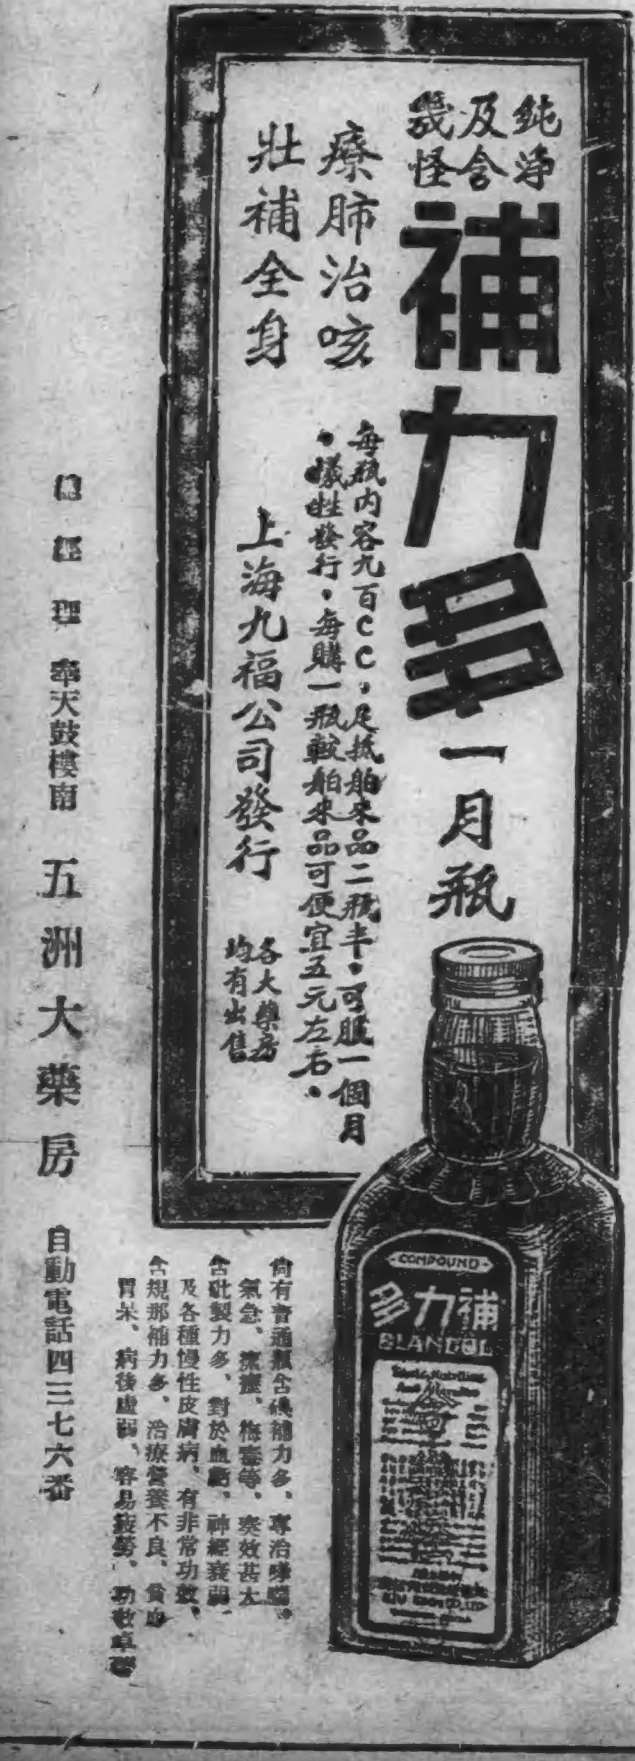 純淨
及含
幾怪
補力多一月瓶
療肺治咳
壯補全身
每瓶內容九百CC，足抵舶來品二瓶半，可服一個月
，犧牲發行，每購一瓶較舶來品可便宜五元左右。
上海九福公司發行
各大藥房
均有出售
COMPOUND
補力多
BLANCOL
尚有普通瓶含碘補力多，專治哮喘，
氣急，瘰癧，梅毒等，奏效甚大
含砒製力多，對於血虧，神經衰弱，
及各種慢性皮膚病，有非常功效，
含規那補力多，治療營養不良，貧血
胃呆，病後虛弱，容易疲勞，功效卓著
總經理 奉天鼓樓南 五洲大藥房 自動電話四三七六番